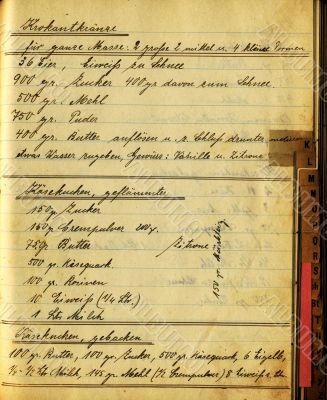 Krokantkränze
für ganze Masse: 2 große 2 mittel u. 4 kleine Formen
36 Eier, Eiweiß zu Schnee
900 gr. Zucker 400 gr davon zum Schnee.
500 gr. Mehl
750 gr. Puder
400 gr. Butter auflösen u. z. Schluß drunter
etwas Wasser zugeben, Gewürz: Vanille u. Zitrone
Käsekuchen, geflämmter
150 gr Zucker
150 gr Crempulver 200 gr.
75 gr Butter Zitrone
500 gr. Käsequark
100 gr. Rosinen
10 Eiweiß (1/4 Ltr.)
1 Ltr. Milch
150 gr.
Käsekuchen, gebacken
100 gr. Butter, 100 gr. Zucker, 500 gr. Käsequark, 6 Eigelb,
Ltr. Milch, 145 gr. Mehl (½ Crempulver) 8 Eiweiß
K
L
M
N
O
P
Q
R
S
St
T